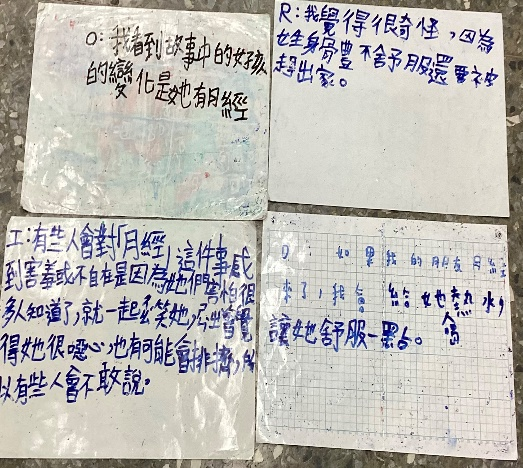 O:我看到故事中的女孩
的變化是她有月經
R:我覺得很奇怪,因為
她身骨豊不舍予服還要被
趕出家。
I:有些人會對「月經」這件事感
到害羞或不自在是因為她們害怕很
多人知道了,就一起笑她,覺
得她很噁心,也有可能會排擠,所
以有些人會不敢說。
D:如果我的朋友月經
來了,我會給她熱水,
讓她舒服一點。